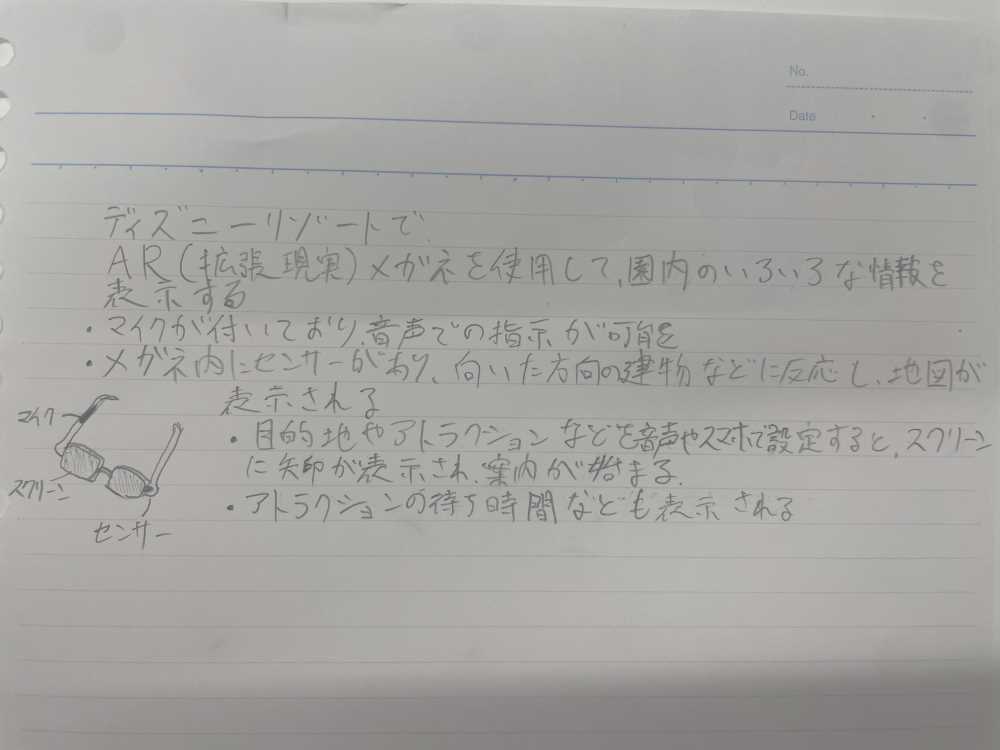 No.
Date
ディズニーリゾートで
AR(拡張現実)メガネを使用して、園内のいろいろな情報を
表示する
・マイクが付いており、音声での指示が可能を
・メガネ内にセンサーがあり、向いた方向の建物などに反応し、地図が
表示される
・目的地やアトラクションなどを音声やスマホで設定すると、スクリーン
に矢印が表示され、案内が始まる。
・アトラクションの待ち時間なども表示される
マイク
スクリーン
センサー